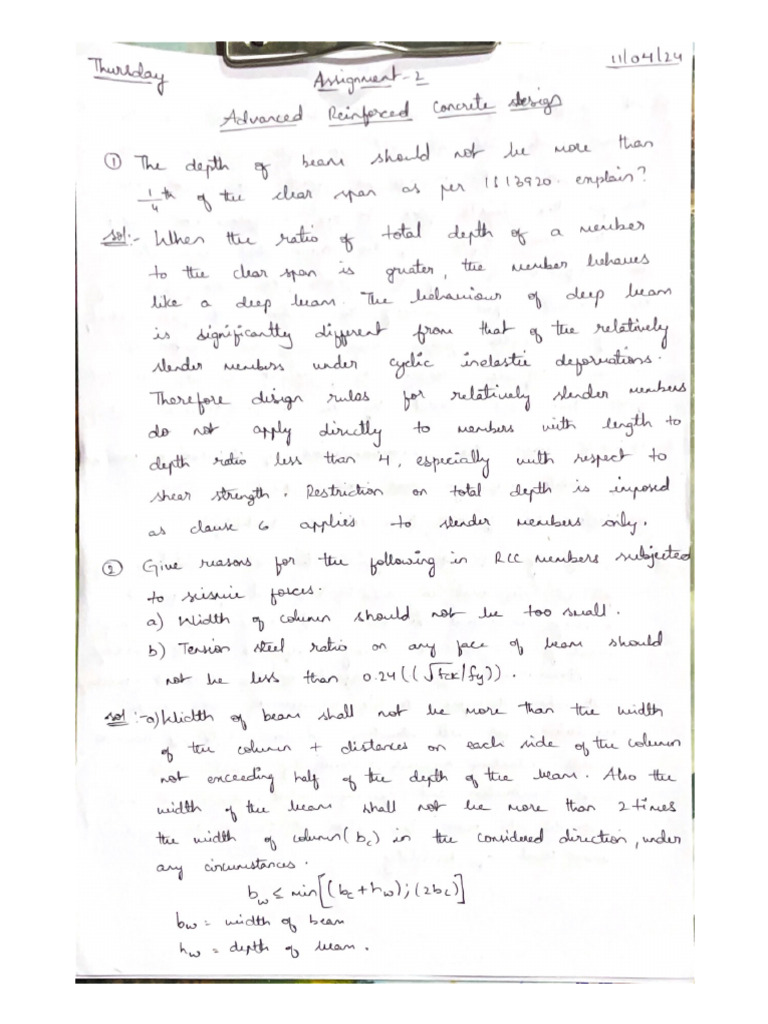 Thursday
11/04/24
Assignment-2
Advanced Reinforced Concrete design
① The depth of beam should not be more than
1/4 th of the clear span as per IS13920. explain?
Sol:- When the ratio of total depth of a member
to the clear span is greater, the member behaves
like a deep beam. The behaviour of deep beam
is significantly different from that of the relatively
slender members under cyclic inelastic deformations.
Therefore design rules for relatively slender members
do not apply directly to members with length to
depth ratio less than 4, especially with respect to
shear strength. Restriction on total depth is imposed
as clause 6 applies to slender members only.
② Give reasons for the following in RCC members subjected
to seismic forces.
a) Width of column should not be too small.
b) Tension steel ratio on any face of beam should
not be less than 0.24((√fck/fy)).
Sol:-a) Width of beam shall not be more than the width
of the column + distances on each side of the column
not exceeding half of the depth of the beam. Also the
width of the beam shall not be more than 2 times
the width of column(bc) in the considered direction, under
any circumstances.
bw ≤ min[(bc+hw);(2bc)]
bw = width of beam
hw = depth of beam.